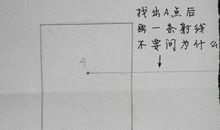 找出A点后
画一条射线
不要问为什么
A